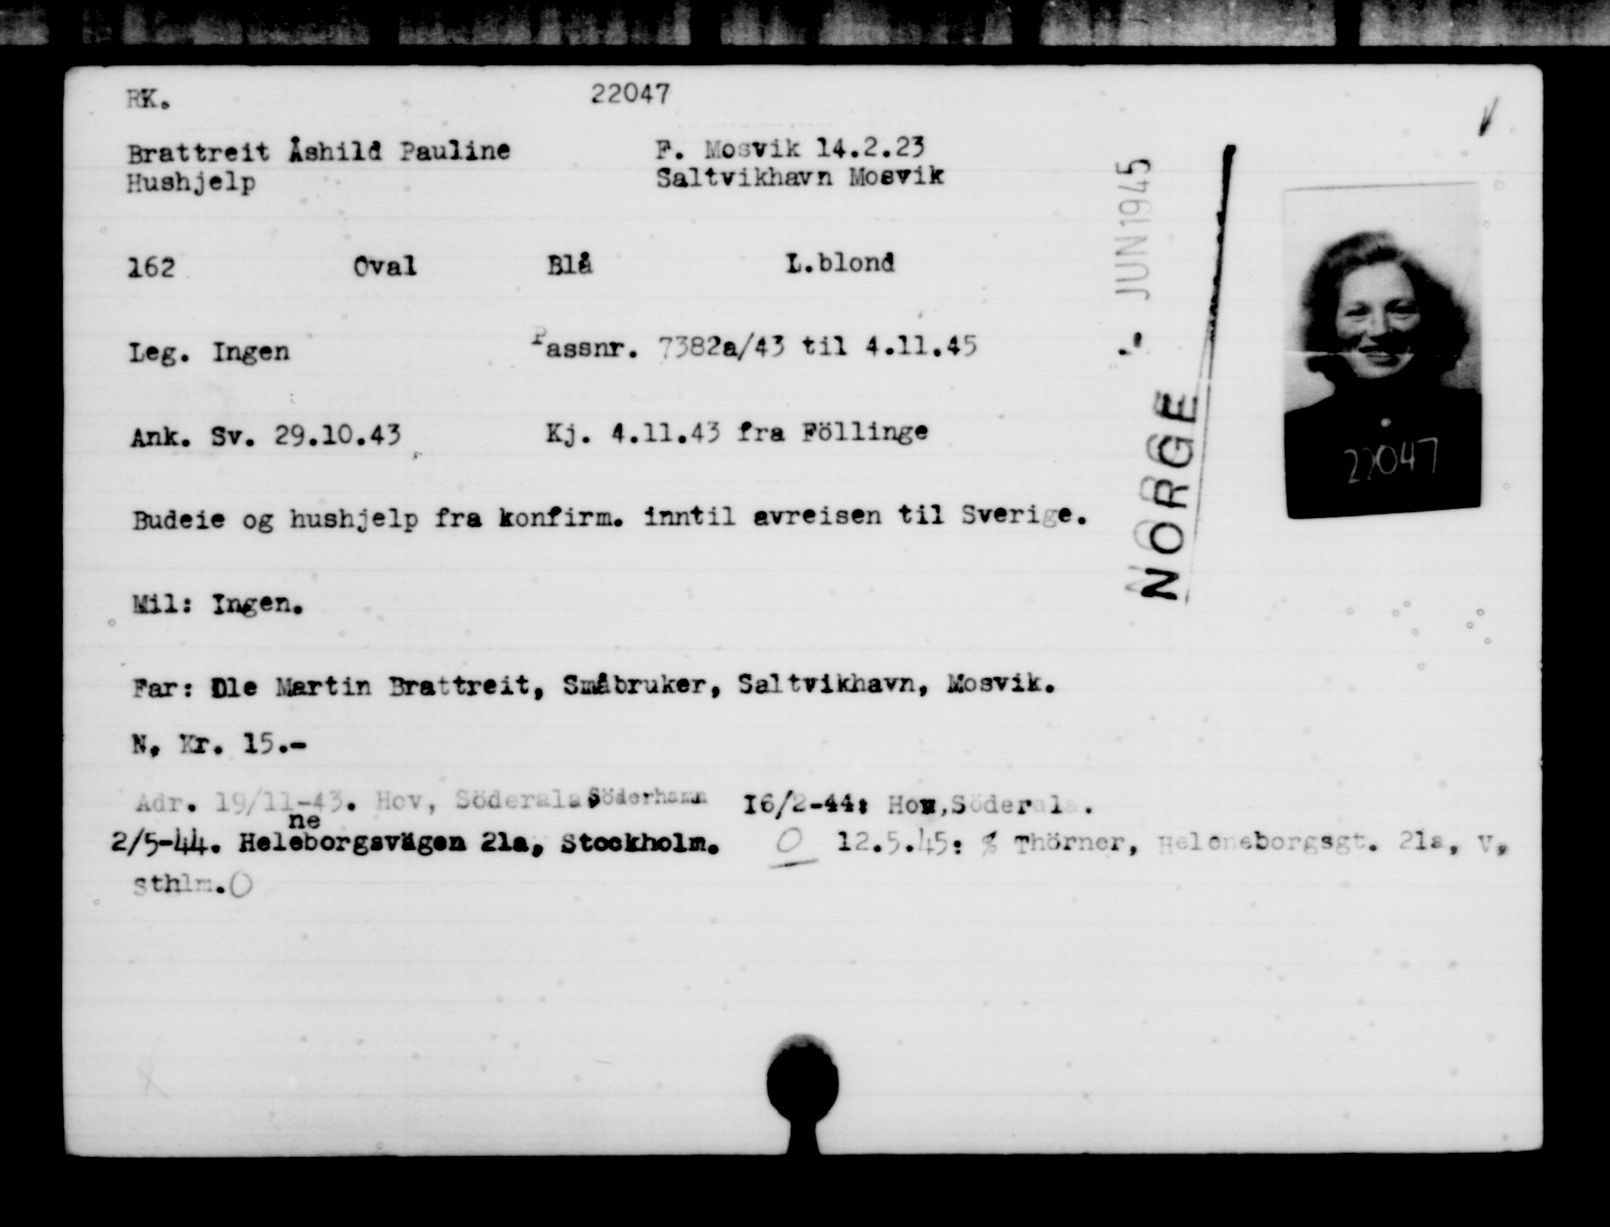 RK. 22047
Brattreit Åshild Pauline F. Mosvik 14.2.23
Hushjelp Saltvikhavn Mosvik
162 Oval Blå L.blond
Leg. Ingen Passnr. 7382a/43 til 4.11.45
Ank. Sv. 29.10.43 Kj. 4.11.43 fra Föllinge
Budeie og hushjelp fra konfirm. inntil avreisen til Sverige.
Mil: Ingen.
Far: Ole Martin Brattreit, Småbruker, Saltvikhavn, Mosvik.
N. Kr. 15.-
Adr. 19/11-43. Hov, Söderala, Söderhamn 16/2-44: Hov, Söderala.
ne
2/5-44. Heleborgsvägen 21a, Stockholm. O 12.5.45: % Thörner, Heleneborgsgt. 21a, V,
sthlm. O
JUN 1945
NORGE
22047